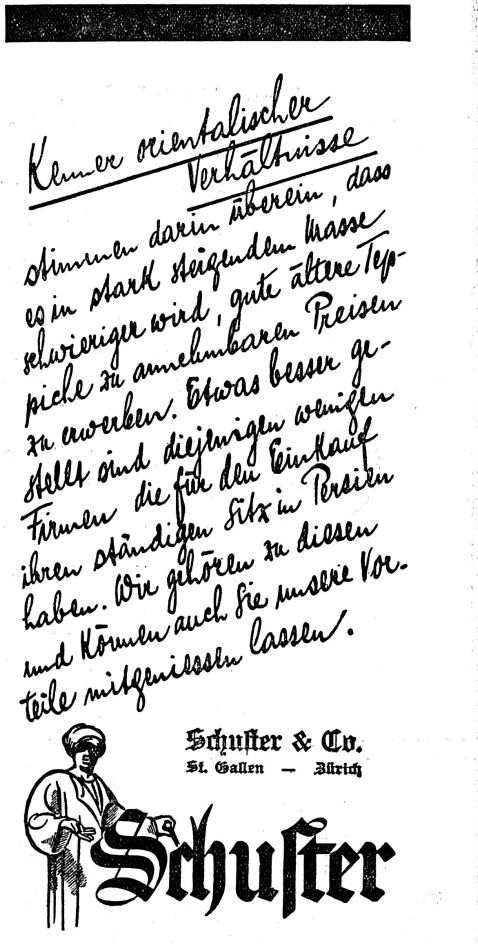 Kenner orientalischer
Verhältnisse
stimmen darin überein, dass
es in stark steigendem Masse
schwieriger wird, gute ältere Tep-
piche zu annehmbaren Preisen
zu erwerben. Etwas besser ge-
stellt sind diejenigen wenigen
Firmen die für den Einkauf
ihren ständigen Sitz in Persien
haben. Wir gehören zu diesen
und können auch Sie unsere Vor-
teile mitgeniessen lassen.
Schuster & Co.
St. Gallen — Zürich
Schuster